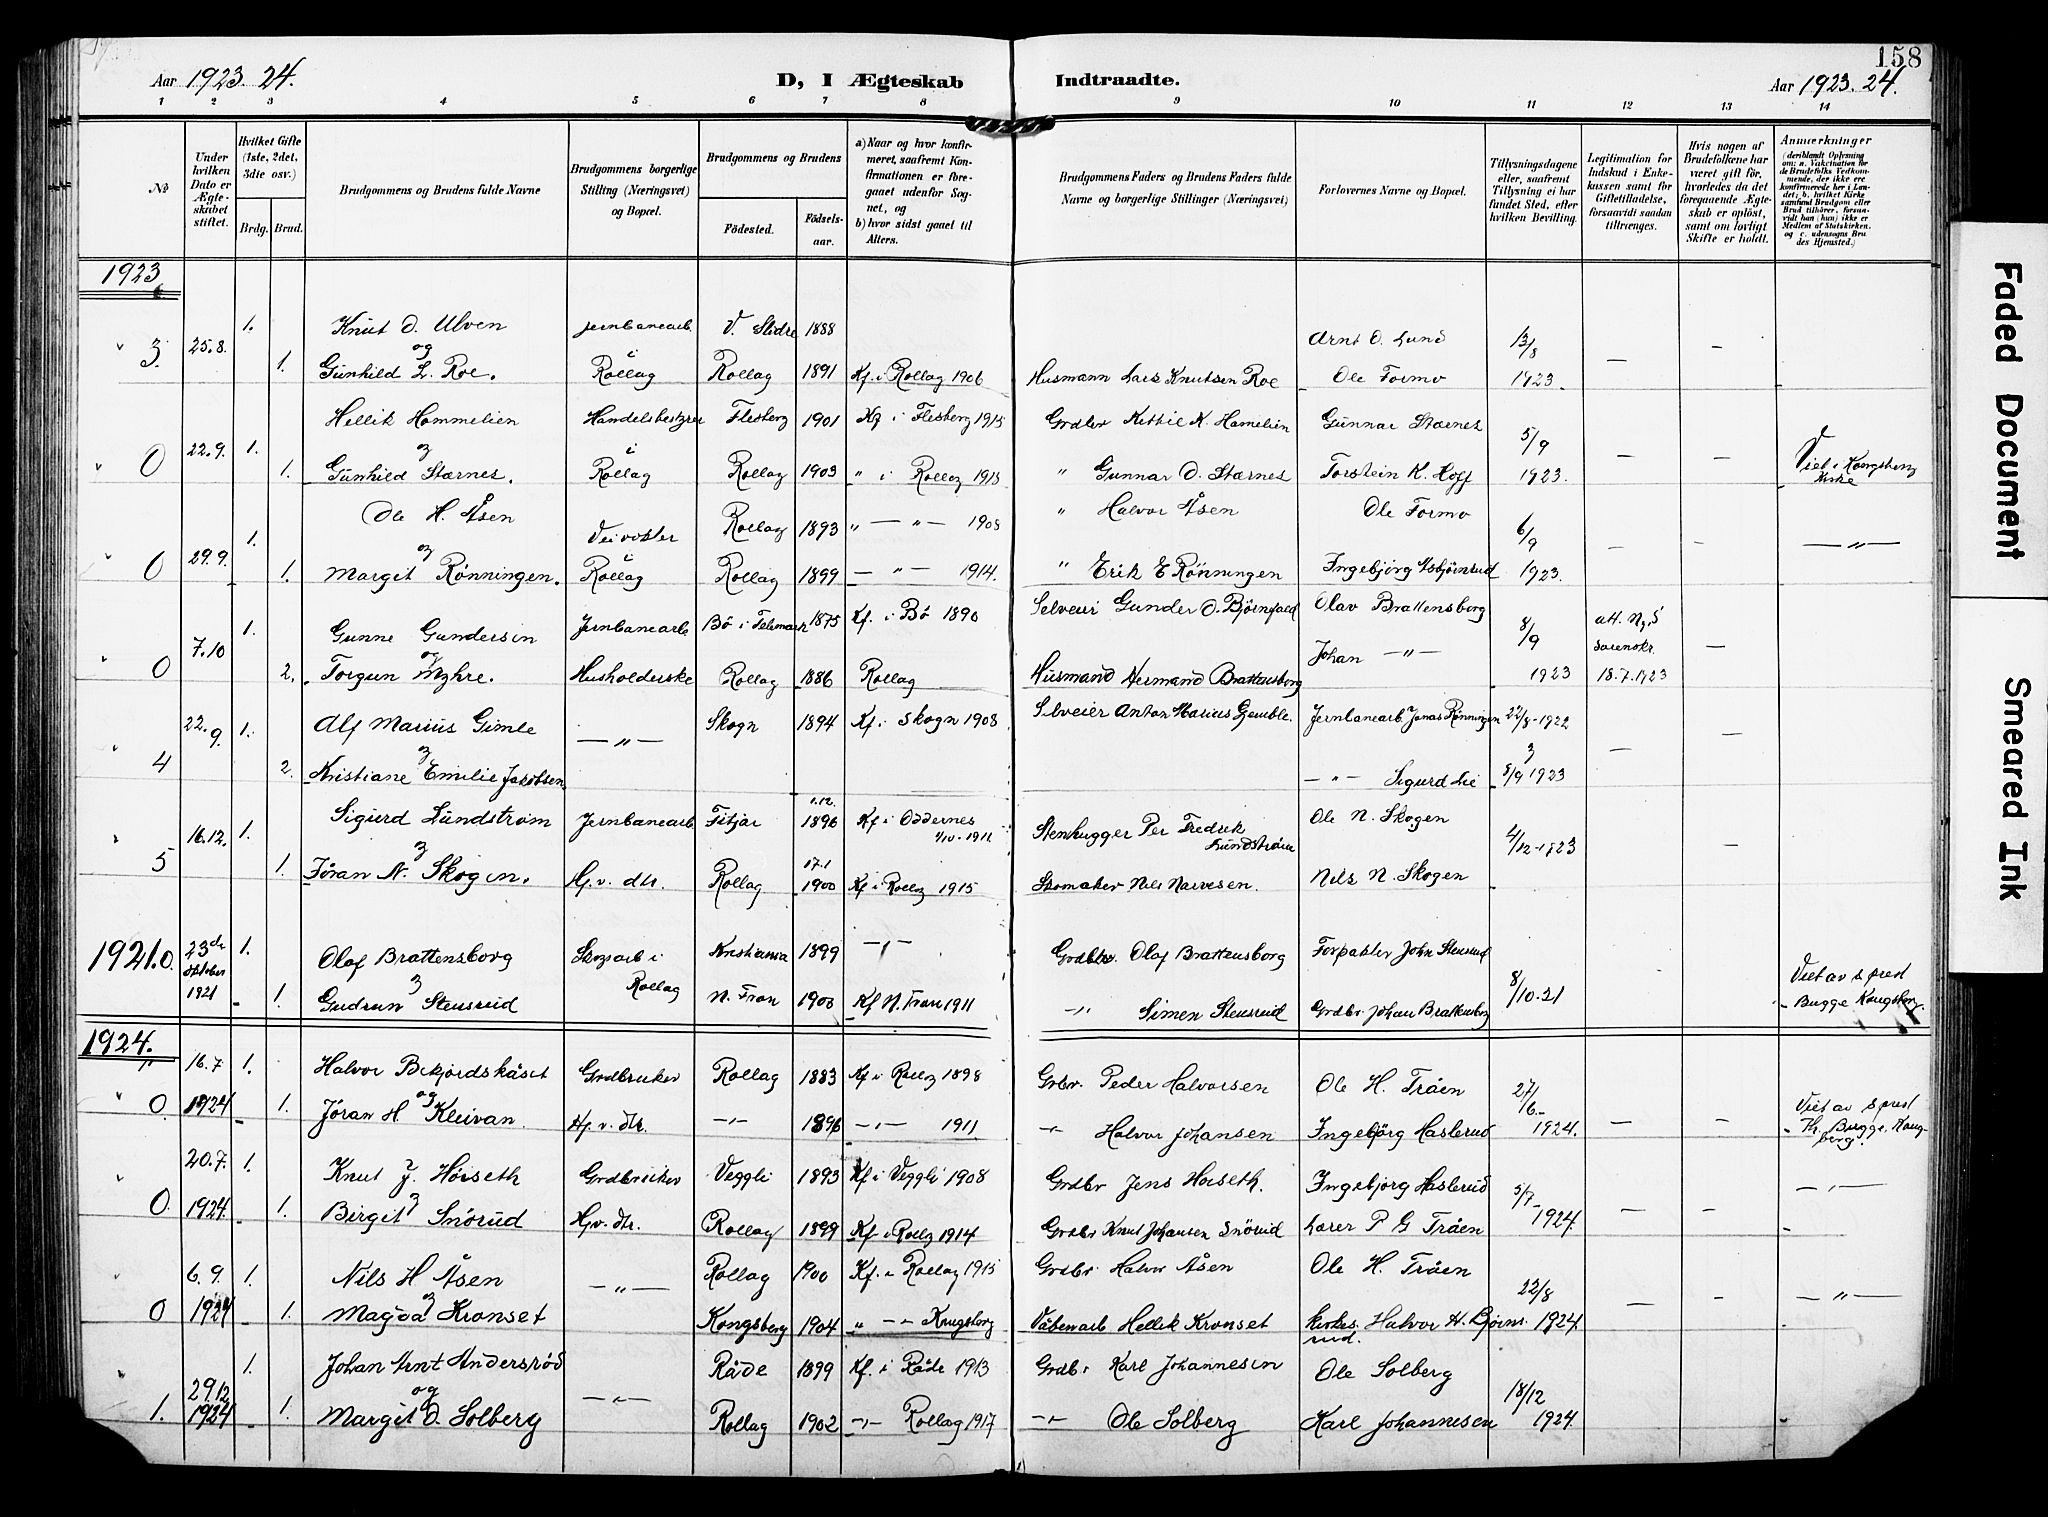 158
Aar 1923. 24.
D, I Ægteskab Indtraadte.
Aar 1923. 24.
1 2 3 4 5 6 7 8 9 10 11 12 13 14
No
Under hvilken Dato er Ægteskabet stiftet.
Hvilket Gifte (1ste, 2det, 3die osv.)
Brdg. Brud.
Brudgommens og Brudens fulde Navne
Brudgommens borgerlige Stilling (Næringsvei) og Bopæl.
Brudgommens og Brudens
Födested.
Födselsaar.
a) Naar og hvor konfirmeret, saafremt Konfirmationen er foregaaet udenfor Sognet, og
b) hvor sidst gaaet til Alters.
Brudgommens Faders og Brudens Faders fulde Navne og borgerlige Stillinger (Næringsvei)
Forlovernes Navne og Bopæl.
Tillysningsdagene eller, saafremt Tillysning ei har fundet Sted, efter hvilken Bevilling.
Legitimation for Indskud i Enkekassen samt for Giftetilladelse, forsaavidt saadan tiltrænges.
Hvis nogen af Brudefolkene har været gift för, hvorledes da det foregaaende Ægteskab er oplöst, samt om lovligt Skifte er holdt.
Anmærkninger
(deriblandt Oplysning om: a. Vakcination for de Brudefolks Vedkommende, der ikke ere konfirmerede her i Landet; b. hvilket Kirkesamfund Brudgom eller Brud tilhörer, forsaavidt han (hun) ikke er Medlem af Statskirken, og c. udensogns Brudes Hjemsted.)
1923
" 3. 25.8. 1. Knut O. Ulven Jernbanearb. V. Slidre 1888 Arnt O. Lund 13/8
og i
1. Gunhild L. Roe. Rollag Rollag 1891 Kf. i Rollag 1906 Husmann Lars Knutsen Roe Ole Formo 1923. — —
Hellik Hommelien Handelsbestyrer Flesberg 1901 Kf i Flesberg 1915 Grdbr Kittil K. Hamelien Gunnar Stærnes 5/9
" 0 22.9. 1. og i
1. Gunhild Stærnes. Rollag Rollag 1903 " i Rollag 1918 " Gunnar O. Stærnes Torstein K. Hoff 1923. — — Viet i Kongsberg Kirke
Ole H. Åsen Veivokter Rollag 1893 " — " — 1908 " Halvor Åsen Ole Formo 6/9
" 0 29.9. 1. og i
1. Margit Rønningen. Rollag Rollag 1899 — " — 1914. " Erik E Rønningen Ingebjørg Asbjørnrud 1923. — — — " —
1. Gunne Gundersen Jernbanearb Bö i Telemark 1875 Kf. i Bö 1890 Selveier Gunder O. Björn Olav Brattensborg 8/9
" 0 7.10 og Johan — " —
2. Torgun Myhre. Husholderske Rollag 1886 Rollag Husmand Hermand Brattensborg 1923 18.7.1923 —
22.9. 1. Alf Marius Gimle — " — Skogn 1894 Kf. i Skogn 1908 Selveier Anton Marius Jernbanearb. Jonas Rønningen 22/8-1922
" 4 og og — —
2. Kristiane Emilie Jakobsen — " — Sigurd Lie 5/9 1923
1.12.
" 5 16.12. 1. Sigurd Lundstrøm Jernbanearb Fitjar 1896 Kf i Oddernes 1/10-1911 Stenhugger Per Fredrik Lundstrøm Ole N. Skogen 4/12-1923
og 17.1
1. Jøran N. Skogen. Hj. v. dtr. Rollag 1900 Kf i Rollag 1915 Skomaker Nils Narvesen. Nils N. Skogen —
1921. 0. 23de oktober 1921 1. Olaf Brattensborg Skogsarb i Kristiania 1899 — " — Grdbr. Olaf Brattensborg Forpakter John Stensrud
og Rollag 8/10.21
1. Gudrun Stensrud N. Fron 1900 Kf N. Fron 1911 — " — Simen Stensrud Grdbr. Johan Brattensborg Viet av s.prest Bugge Kongsberg.
1924.
" 16.7 1. Halvor Bekjordskåset Grdbruker Rollag 1883 Kf i Rollag 1898 Grbr. Peder Halvorsen Ole H. Tråen 27/6-
" 0. 1924 og
1. Jöran H Kleivan. Hj. v. dtr. — " — 1896 — " — 1911 " Halvor Johansen Ingebjörg Haslerud 1924. — — Viet av s.prest Th. Bugge, Kongsberg.
" 20.7. 1. Knut J. Hoiseth Grdbruker Veggli 1893 Kf i Veggli 1908 Grdbr Jens Hoiseth. Ingebjörg Haslerud 5/7-
0. 1924. 1. og Birgit Snörud Hj. v. dtr. Rollag 1899 Kf i Rollag 1914 Grdbr Knut Johansen Snörud Lærer P G Tråen 1924. — — — " —
" 6.9. 1. Nils H Åsen — " — Rollag 1900 Kf. i Rollag 1915 Grdbr Halvor Åsen Ole H. Tråen 22/8
0 1924 1. og Magda Kronset Kongsberg 1904 " — " — Kongsberg Våbenarb Hellik Kronset Kirkes. Halvor H. Bjørnsrud. 1924. — — — " —
" 29.12 1. Johan Arnt Andersrød — " — Råde 1899 Kf. i Råde 1913 Grdbr Karl Johannesen Ole Solberg 18/12
og
1. 1924 1. Margit O. Solberg Rollag 1902 — " — Rollag 1917 — " — Ole Solberg Karl Johannesen 1924.
Faded Document
Smeared Ink